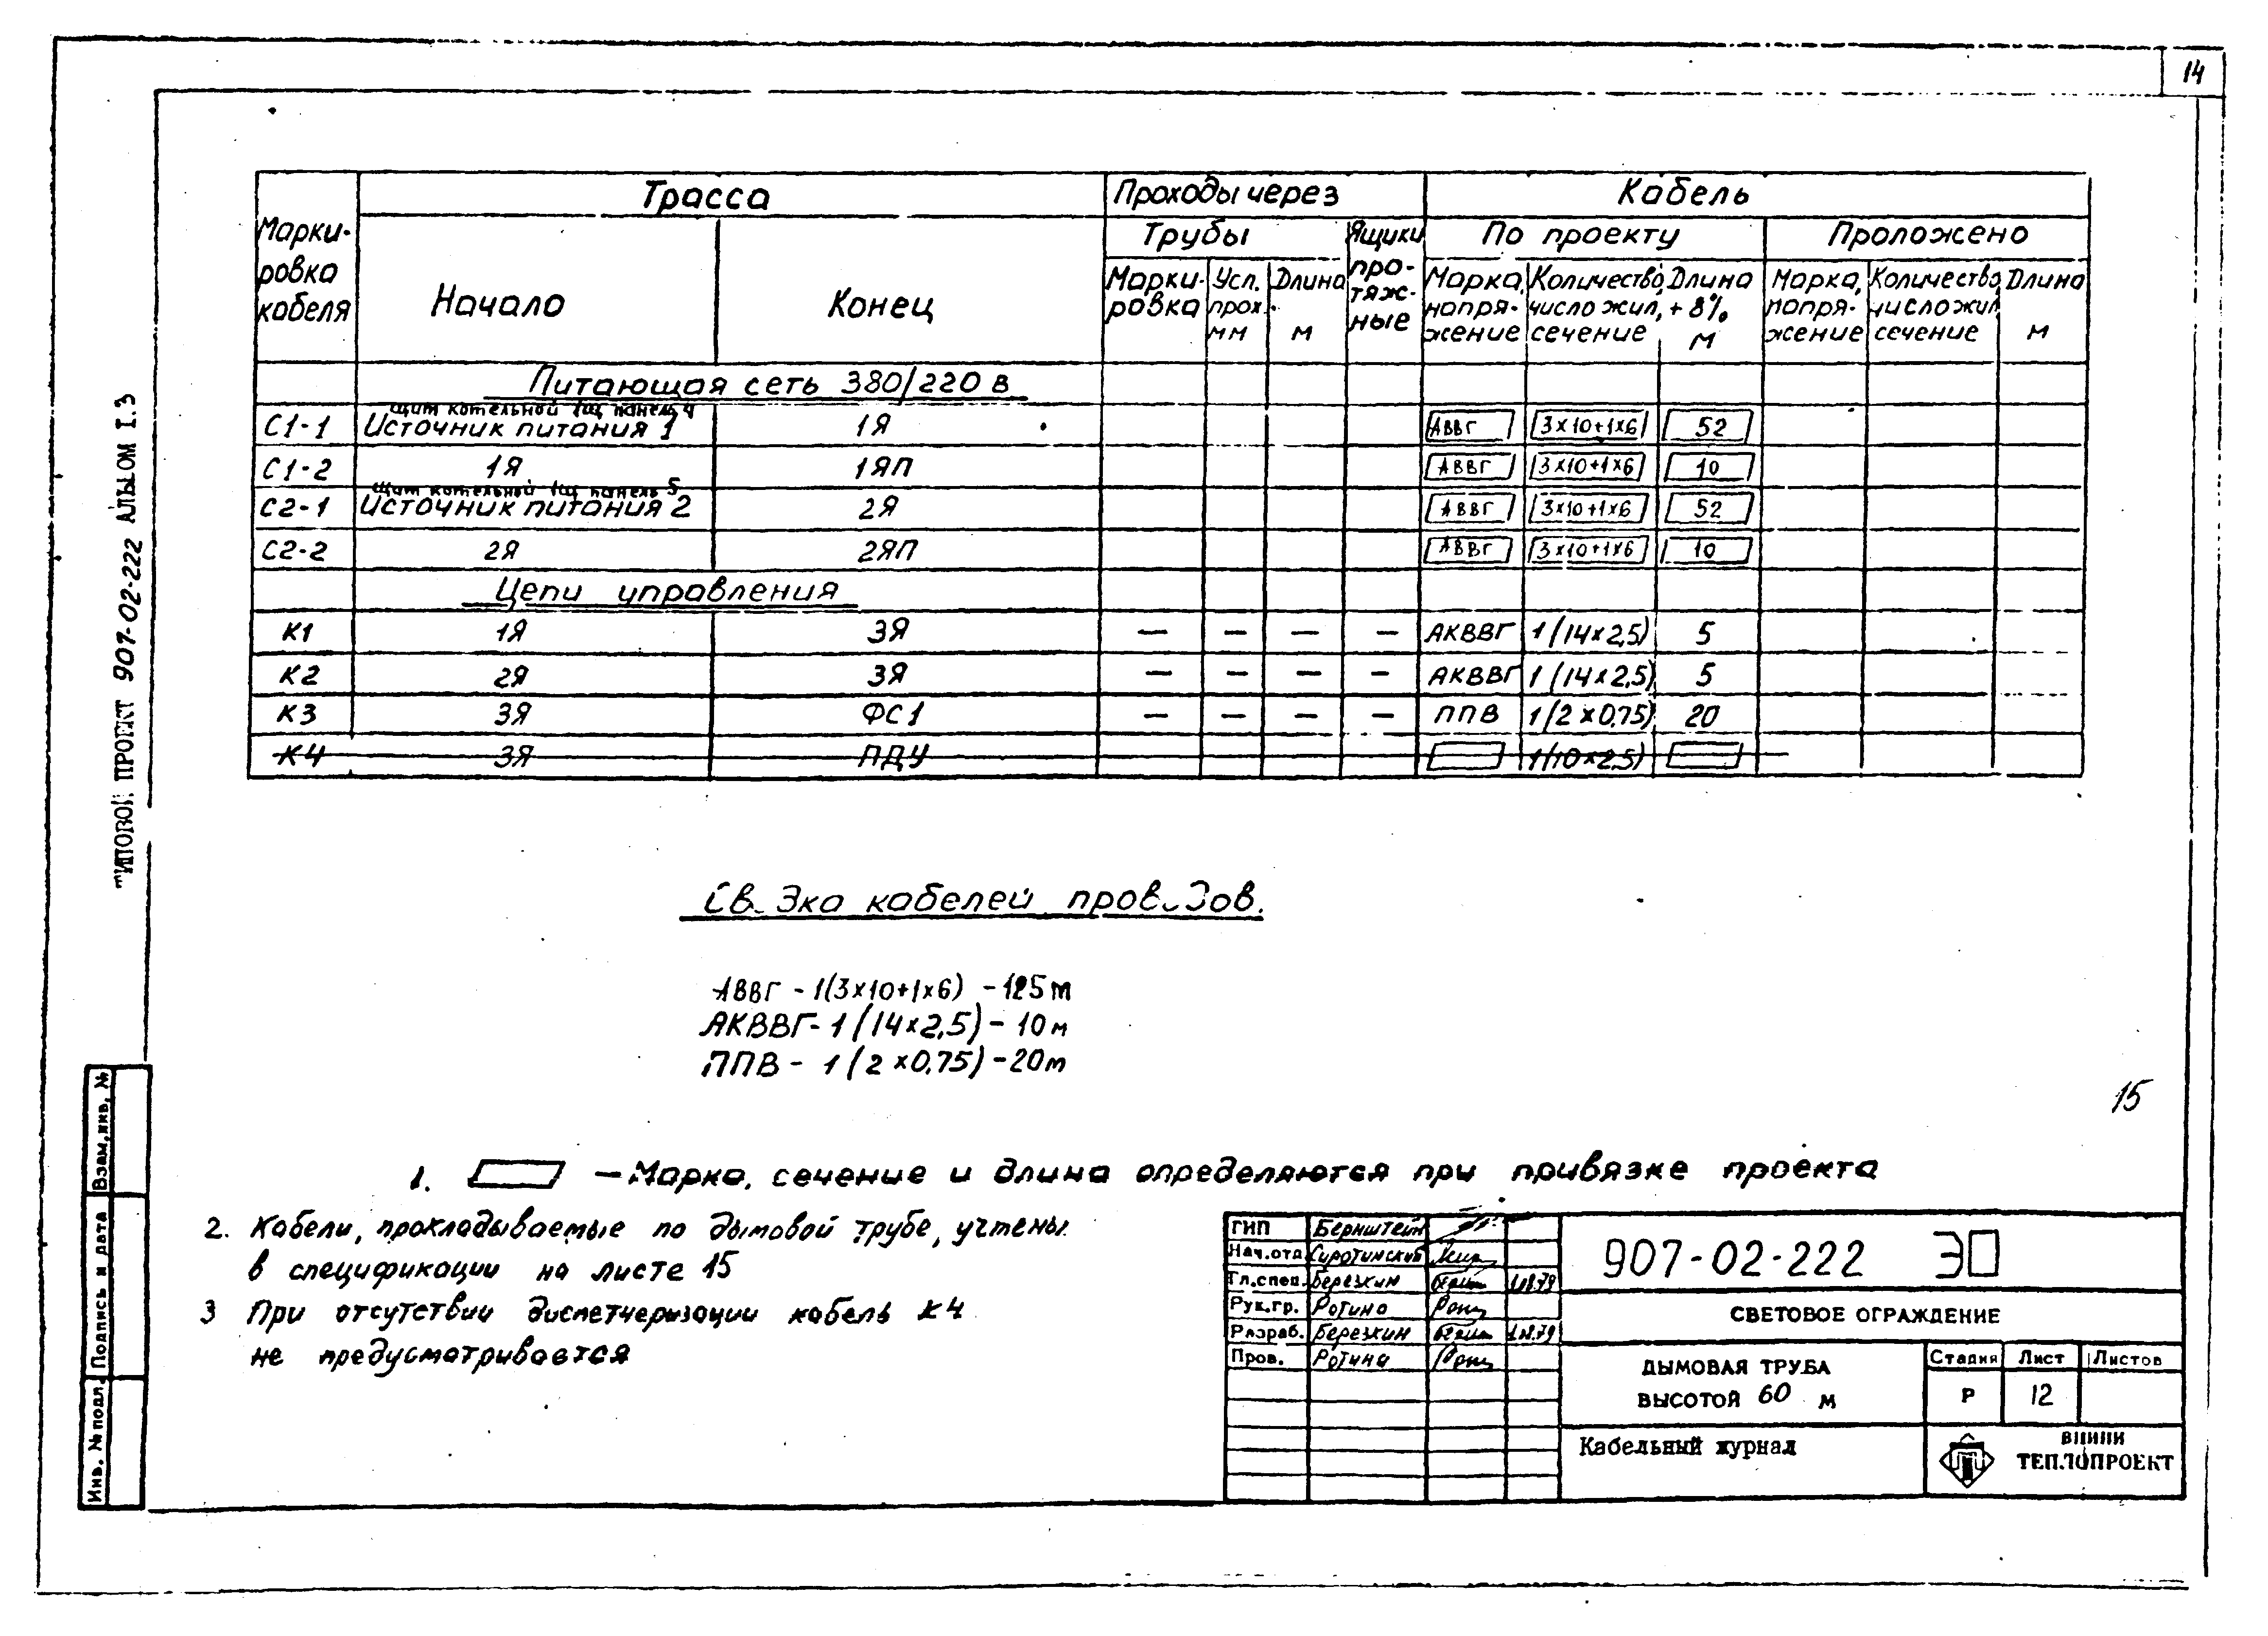 14
ТИПОВОЙ ПРОЕКТ 907-02-222 АЛЬБОМ I.3
Марки-
ровка
кабеля
Трасса
Начало
Конец
Проходы через
Трубы
Марки-
ровка
Усл.
прох.
мм
Длина
м
Ящики
про-
тяж-
ные
Кабель
По проекту
Марка,
напря-
жение
Количество,
число жил,
сечение
Длина
+ 8%
м
Проложено
Марка,
напря-
жение
Количество,
число жил,
сечение
Длина
м
Питающая сеть 380/220 в
щит котельной 1щ панель 4
С1-1 Источник питания 1 1Я АВВГ 3×10+1×6 52
С1-2 1Я 1ЯП АВВГ 3×10+1×6 10
щит котельной 1щ панель 5
С2-1 Источник питания 2 2Я АВВГ 3×10+1×6 52
С2-2 2Я 2ЯП АВВГ 3×10+1×6 10
Цепи управления
К1 1Я 3Я — — — — АКВВГ 1(14×2,5) 5
К2 2Я 3Я — — — — АКВВГ 1(14×2,5) 5
К3 3Я ФС1 — — — — ППВ 1(2×0,75) 20
К4 3Я ПДУ 1(10×2,5)
кабелей
АВВГ - 1(3×10+1×6) - 125м
АКВВГ - 1(14×2,5) - 10м
ППВ - 1(2×0,75) - 20м
15
1. — Марка, сечение и длина определяются при привязке проекта
2. Кабели, прокладываемые по дымовой трубе, учтены
в спецификации на листе 15
3 При отсутствии диспетчеризации кабель К4
не предусматривается
Взам.инв. №
Подпись и дата
Инв. № подл.
ГИП Бернштейн
Нач.отд. Сиротинский
Гл.спец. Березкин
Рук.гр. Ротина
Разраб. Березкин
Пров. Ротина
907-02-222 ЭО
СВЕТОВОЕ ОГРАЖДЕНИЕ
ДЫМОВАЯ ТРУБА
ВЫСОТОЙ 60 м
Стадия Лист Листов
Р 12
Кабельный журнал
ВНИПИ
ТЕПЛОПРОЕКТ